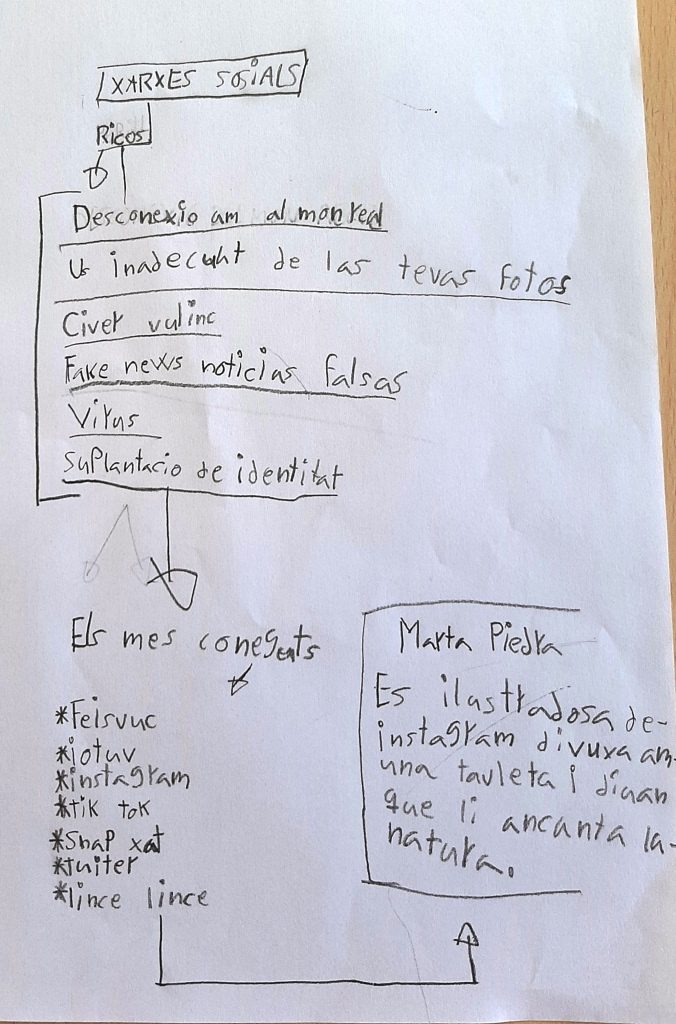 XARXES SOSiALS
Ricos
Desconexio am al mon real
Us inadecuat de las tevas fotos
Civer vulinc
Fake news noticias falsas
Virus
suplantacio de identitat
Els mes coneguts
*Feisvuc
*iotuv
*instagram
*tik tok
*Snap xat
*tuiter
*lince lince
Marta Piedra
Es ilustradosa de-
instagram divuxa am
una tauleta i diuan
que li ancanta la-
natura.